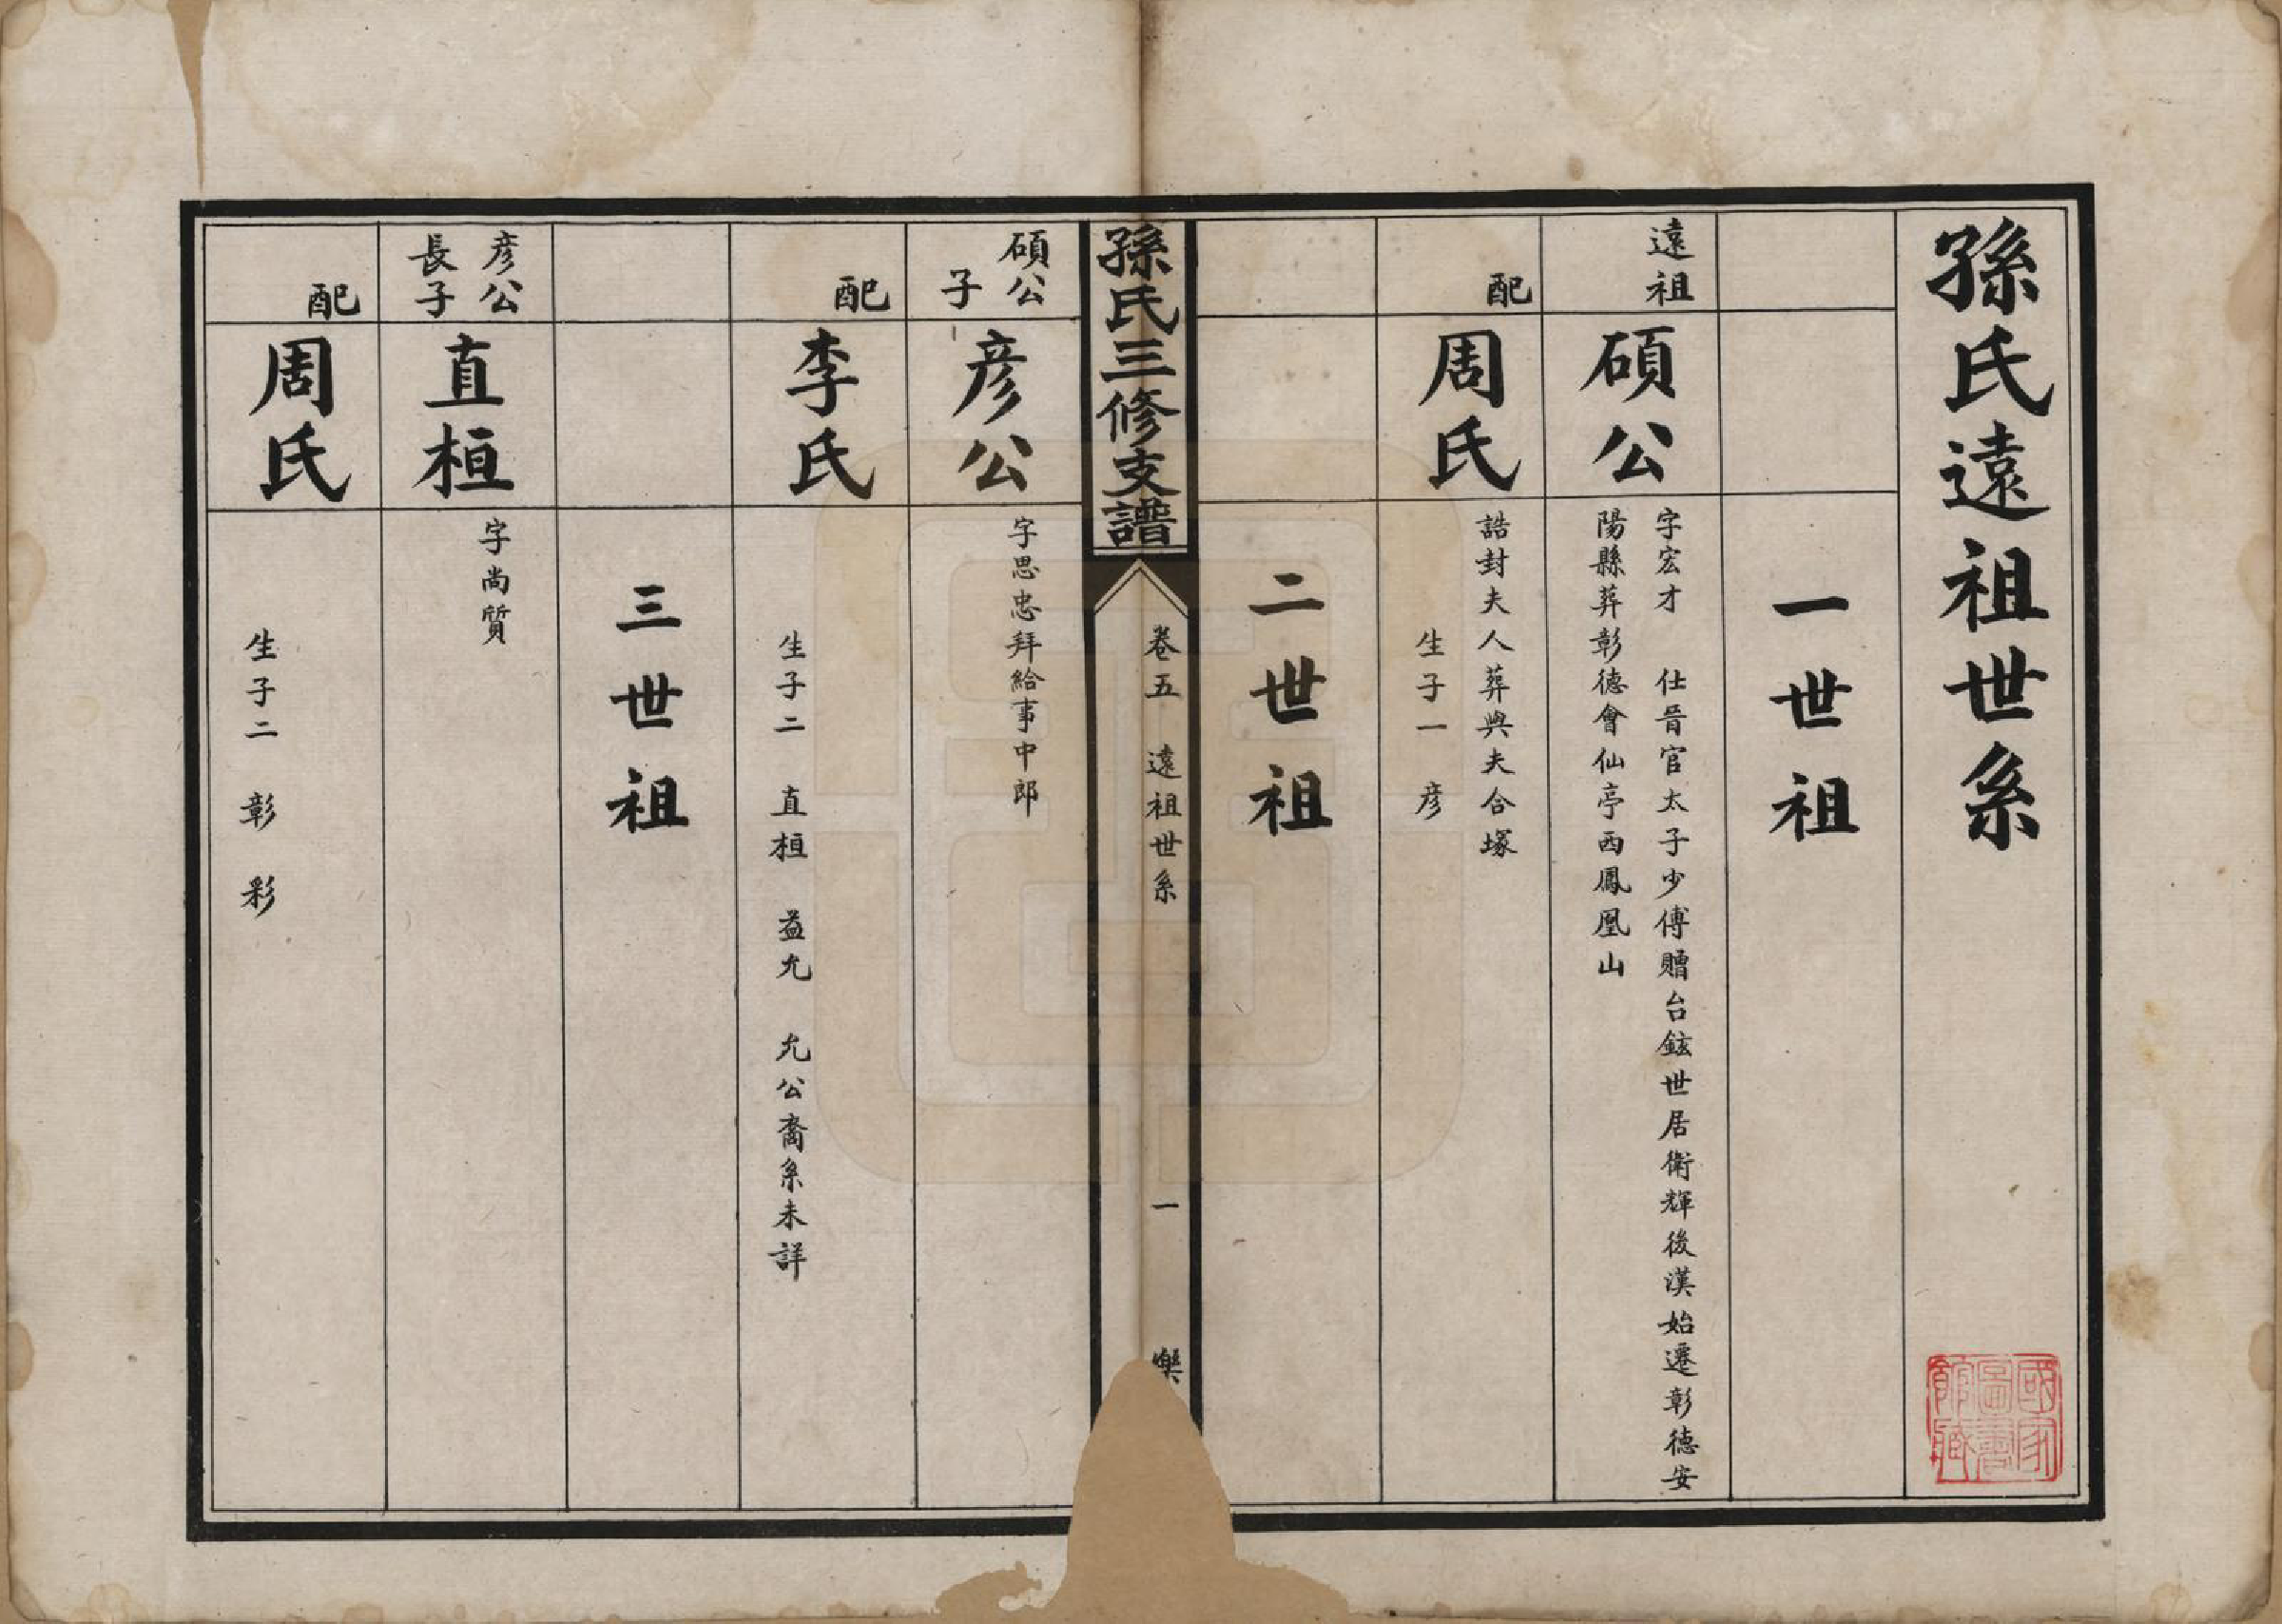 孫氏遠祖世系
一世祖
遠祖
碩公
字宏才　仕晉官太子少傅贈台鉉世居衛輝後漢始遷彰德安
陽縣葬彰德會仙亭西鳳凰山
配
周氏
誥封夫人葬與夫合塚
生子一　彦
二世祖
孫氏三修支譜
卷五　遠祖世系　一
碩公
子
彦公
字思忠拜給事中郎
配
李氏
生子二　直桓　益允　允公裔系未詳
三世祖
彦公
長子
直桓
字尚質
配
周氏
生子二　彰　彩
國家
圖書
館藏